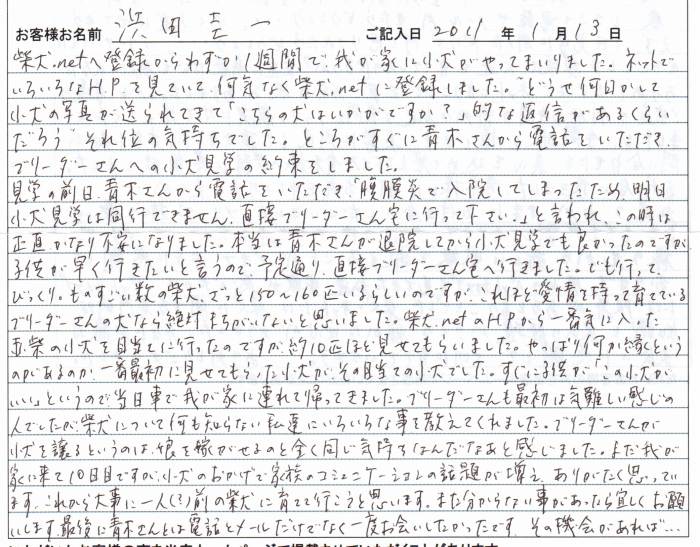 お客様お名前 浜田圭一 ご記入日 2011年1月13日
柴犬.netへ登録からわずか1週間で、我が家に小犬がやってまいりました。ネットで
いろいろなH.P.を見ていて、何気なく柴犬.netに登録しました。"どうせ何日かして
小犬の写真が送られてきて「こちらの犬はいかがですか?」的な返信があるくらい
だろう"それ位の気持ちでした。ところがすぐに青木さんから電話をいただき、
ブリーダーさんへの小犬見学の約束をしました。
見学の前日、青木さんから電話をいただき、「腹膜炎で入院してしまったため、明日
小犬見学は同行できません。直接ブリーダーさん宅に行って下さい。」と言われ、この時は
正直かなり不安になりました。本当は青木さんが退院してから小犬見学でも良かったのですが
子供が早く行きたいと言うので、予定通り、直接ブリーダーさん宅へ行きました。でも行って、
びっくり。ものすごい数の柴犬、ざっと150〜160匹いるらしいのですが、これほど愛情を持って育てている
ブリーダーさんの犬なら絶対まちがいないと思いました。柴犬.netのH.P.から一番気に入った
赤柴の小犬を目当てに行ったのですが、約10匹ほど見せてもらいました。やっぱり何か縁という
のがあるのか、一番最初に見せてもらった小犬が、その目当ての小犬でした。すぐに子供が「この小犬が
いい」というので当日車で我が家に連れて帰ってきました。ブリーダーさんも最初は気難しい感じの
人でしたが柴犬について何も知らない私達にいろいろな事を教えてくれました。ブリーダーさんが
小犬を譲るというのは、娘を嫁がせるのと全く同じ気持ちなんだなあと感じました。まだ我が
家に来て10日目ですが、小犬のおかげで家族のコミュニケーションの話題が増え、ありがたく思ってい
ます。これから大事に一人(?)前の柴犬に育てて行こうと思います。また分からない事があったら宜しくお願
いします。最後に青木さんとは電話とメールだけでなく一度お会いしたかったです。その機会があれば…